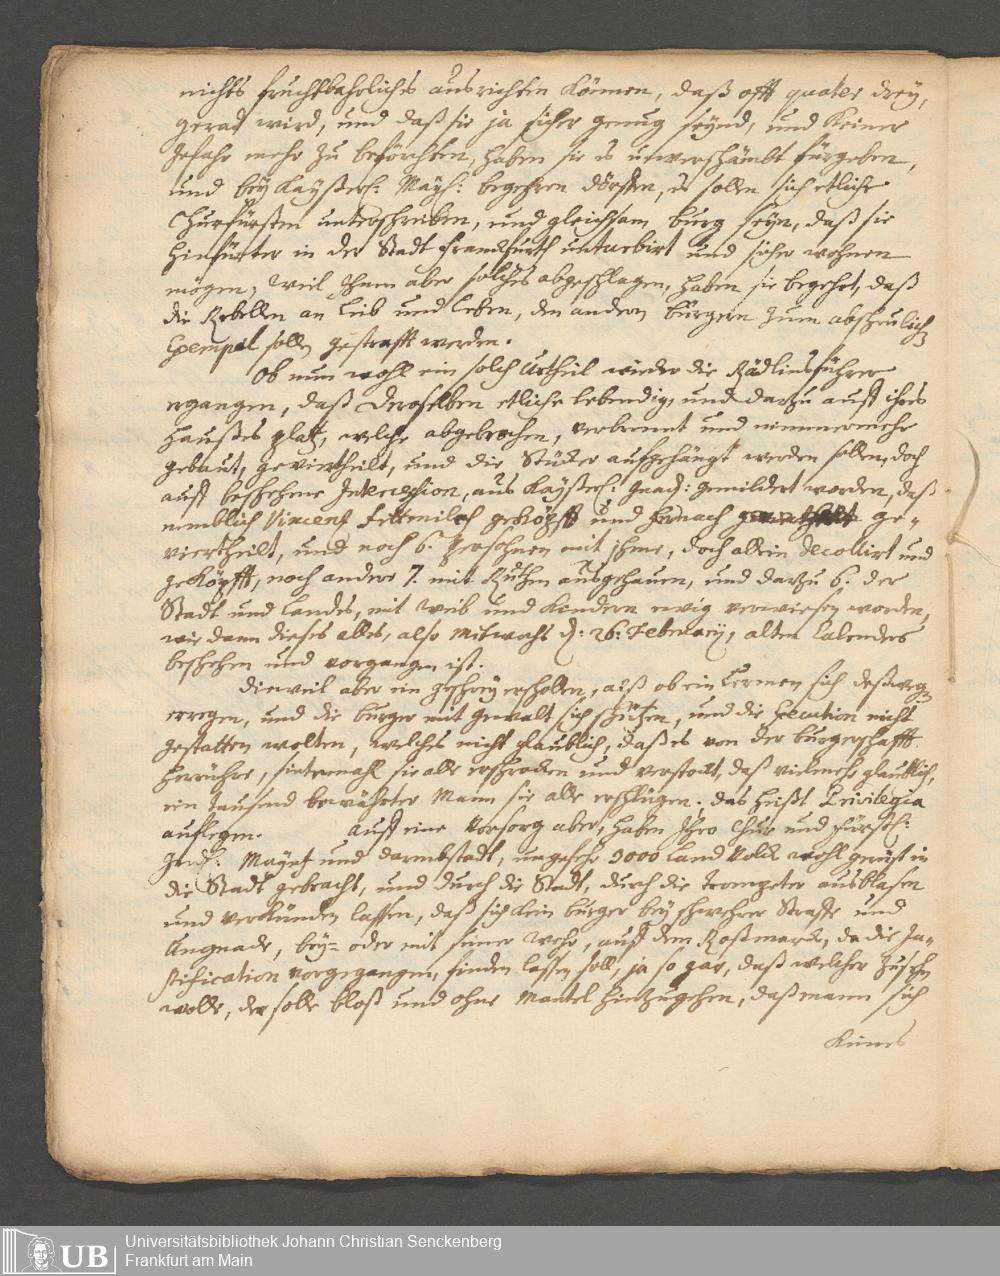 nichts fruchtbahrliches ausrichten können, daß offt quater drey,
gerad wird, und daß sie ja sicher genug seynd, und keiner
gefahr mehr zu beförchten, haben sie es unverschämbt fürgeben,
und bey Kayßerl: Mayt: begehren dörffen, es sollen sich etliche
Churfürsten unterschreiben, und gleichsam burg seyn, daß sie
hinfürter in der Stadt Franckfurth unturbirt und sicher wohnen
mögen, weil Ihnen aber solches abgeschlagen, haben sie begehrt, daß
die Rebellen an Leib und Leben, den andern Bürgern zum abscheulichen
Exempel sollen gestrafft werden.
Ob nun wohl ein solch Urtheil wieder die Rädlinsführer
ergangen, daß deroselben etliche lebendig, und darzu auff ihres
Haußes platz, welche abgebrochen, verbrennt und nimmermehr
gebaut, geviertheilt, und die Stücker aufgehängt werden sollen, doch
auff beschehene Intercession, aus Kayßerl. Gnad: gemildert worden, daß
nemblich Vincenz Fettmilch geköpfft und hernach ge-
viertheilt, und noch 6. Persohnen mit ihme, doch allein decollirt und
geköpfft, noch andere 7. mit Ruthen ausgehauen, und darzu 6. der
Stadt und Landes, mit Weib und Kindern ewig verwiesen worden,
wie dann dieses alles, also Mitwochs d: 26: February, alten Calenders
beschehen und vorgangen ist.
Dieweil aber ein geschrey erschollen, alß ob ein Lermen sich deßwegen
erregen, und die Burger mit gewalt sich schützen, und die Execution nicht
gestatten wolten, welches nicht glaublich, daß es von der burgerschafft
herrühre, sintemahl sie alle erschrocken und verstockt, daß vielmehr glaublich,
ein tausend bewährter Mann sie alle erschlügen; das heißt Privilegia
auflegen. Auff eine Vorsorg aber, haben Ihro Chur und Fürstl:
Gnd: Maynz und Darmbstadt, ungefehr 3000 Land Volck wohl gerüst in
die Stadt gebracht, und durch die Stadt, durch die Trompeter ausblasen
und verkünden lassen, daß sich kein burger bey schwehrer Straffe und
Ungnade, bey- oder mit seiner wehr, auff dem Roßmarck, da die Ju-
stification vorgegangen, finden lassen soll, ja so gar, daß welcher zusehen
wolle, der solle bloß und ohne Mantel hinzugehen, daß mann sich
keines
UB
Universitätsbibliothek Johann Christian Senckenberg
Frankfurt am Main